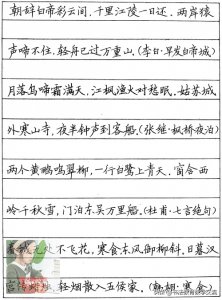 朝辞白帝彩云间，千里江陵一日还。两岸猿
声啼不住，轻舟已过万重山。(李白·早发白帝城)
月落乌啼霜满天，江枫渔火对愁眠。姑苏城
外寒山寺，夜半钟声到客船。(张继·枫桥夜泊)
两个黄鹂鸣翠柳，一行白鹭上青天。窗含西
岭千秋雪，门泊东吴万里船。(杜甫·七言绝句)
无处不飞花，寒食东风御柳斜。日暮汉
宫传蜡烛，轻烟散入五侯家。(韩翃·寒食)